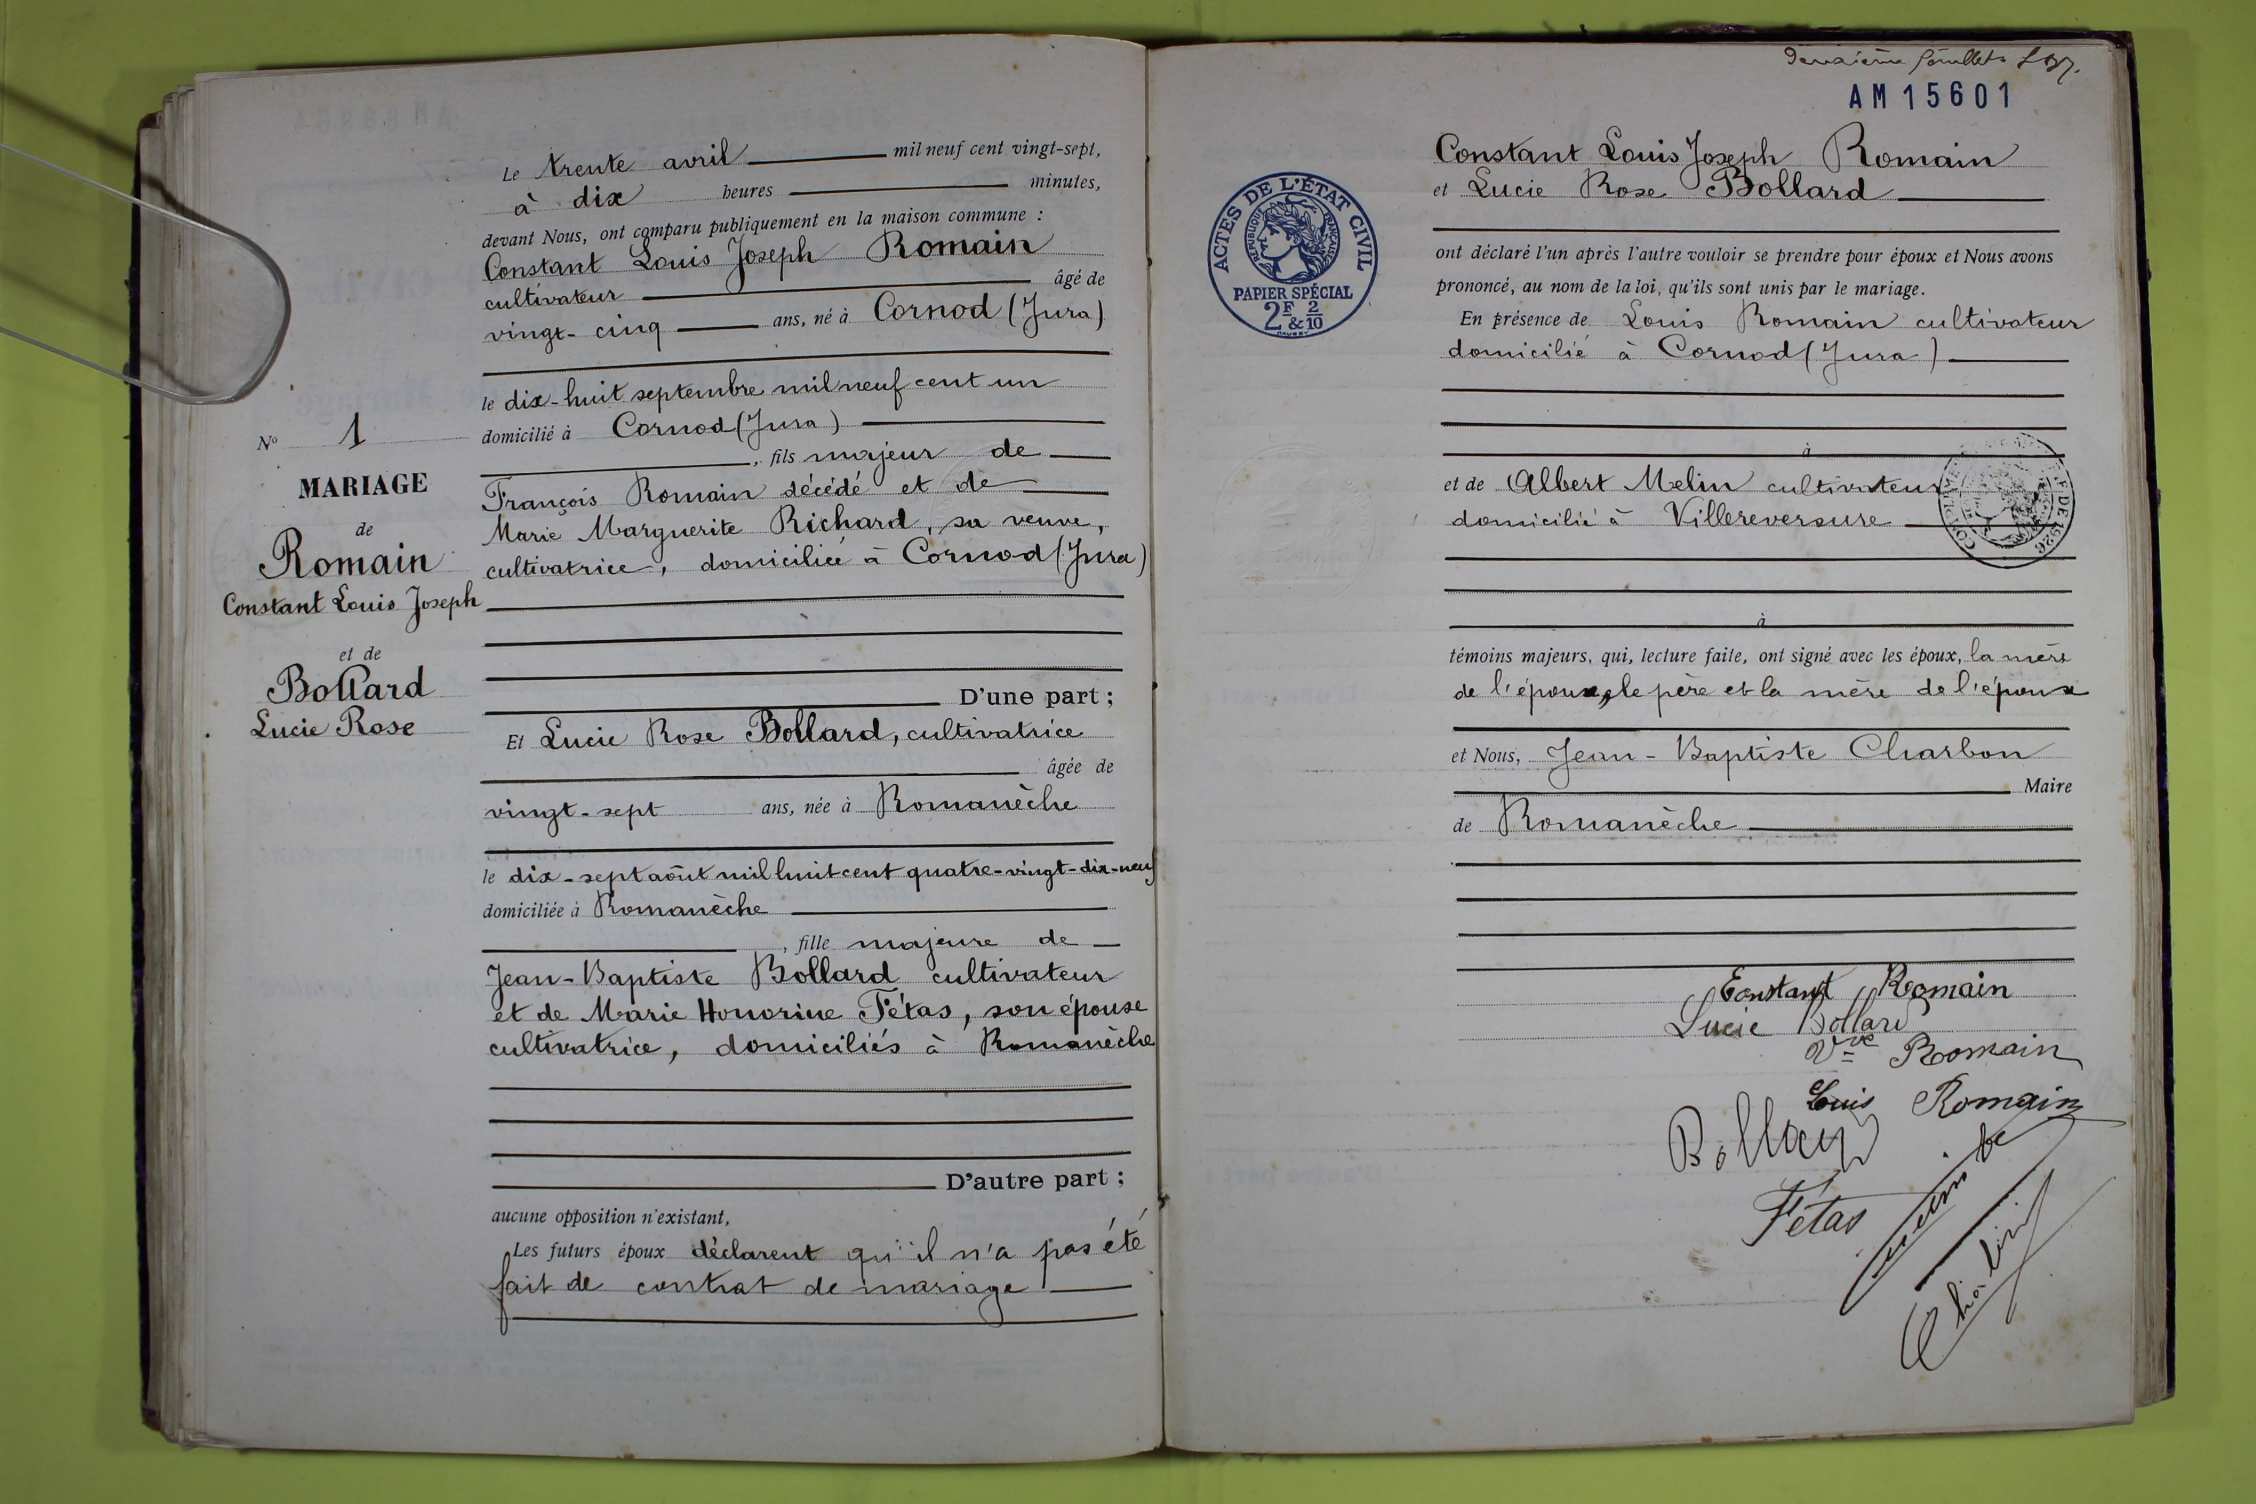 Le trente avril mil neuf cent vingt-sept,
à dix heures minutes,
devant Nous, ont comparu publiquement en la maison commune :
Constant Louis Joseph Romain
cultivateur âgé de
vingt-cinq ans, né à Cornod (Jura)
le dix-huit septembre mil neuf cent un
domicilié à Cornod (Jura)
, fils majeur de
François Romain décédé et de
Marie Marguerite Richard, sa veuve,
cultivatrice, domiciliée à Cornod (Jura)
D'une part ;
Et Lucie Rose Bollard, cultivatrice
âgée de
vingt-sept ans, née à Romanèche
le dix-sept août mil huit cent quatre-vingt-dix-neuf
domiciliée à Romanèche
, fille majeure de
Jean-Baptiste Bollard cultivateur
et de Marie Honorine Fétas, son épouse
cultivatrice, domiciliés à Romanèche
D'autre part ;
aucune opposition n'existant,
Les futurs époux déclarent qu'il n'a pas été
fait de contrat de mariage
No 1
MARIAGE
de
Romain
Constant Louis Joseph
et de
Bollard
Lucie Rose
AM 15601
Constant Louis Joseph Romain
et Lucie Rose Bollard
ont déclaré l'un après l'autre vouloir se prendre pour époux et Nous avons
prononcé, au nom de la loi, qu'ils sont unis par le mariage.
En présence de Louis Romain cultivateur
domicilié à Cornod (Jura)
à
et de Albert Melin cultivateur
domicilié à Villereversure
à
témoins majeurs, qui, lecture faite, ont signé avec les époux, la mère
de l'époux, le père et la mère de l'épouse
et Nous, Jean-Baptiste Charbon
Maire
de Romanèche
Constant Romain
Lucie Bollard
Vve Romain
Louis Romain
Bollard
Fétas
ACTES DE L'ÉTAT CIVIL
RÉPUBLIQUE FRANÇAISE
PAPIER SPÉCIAL
2F & 2/10
DE 1926